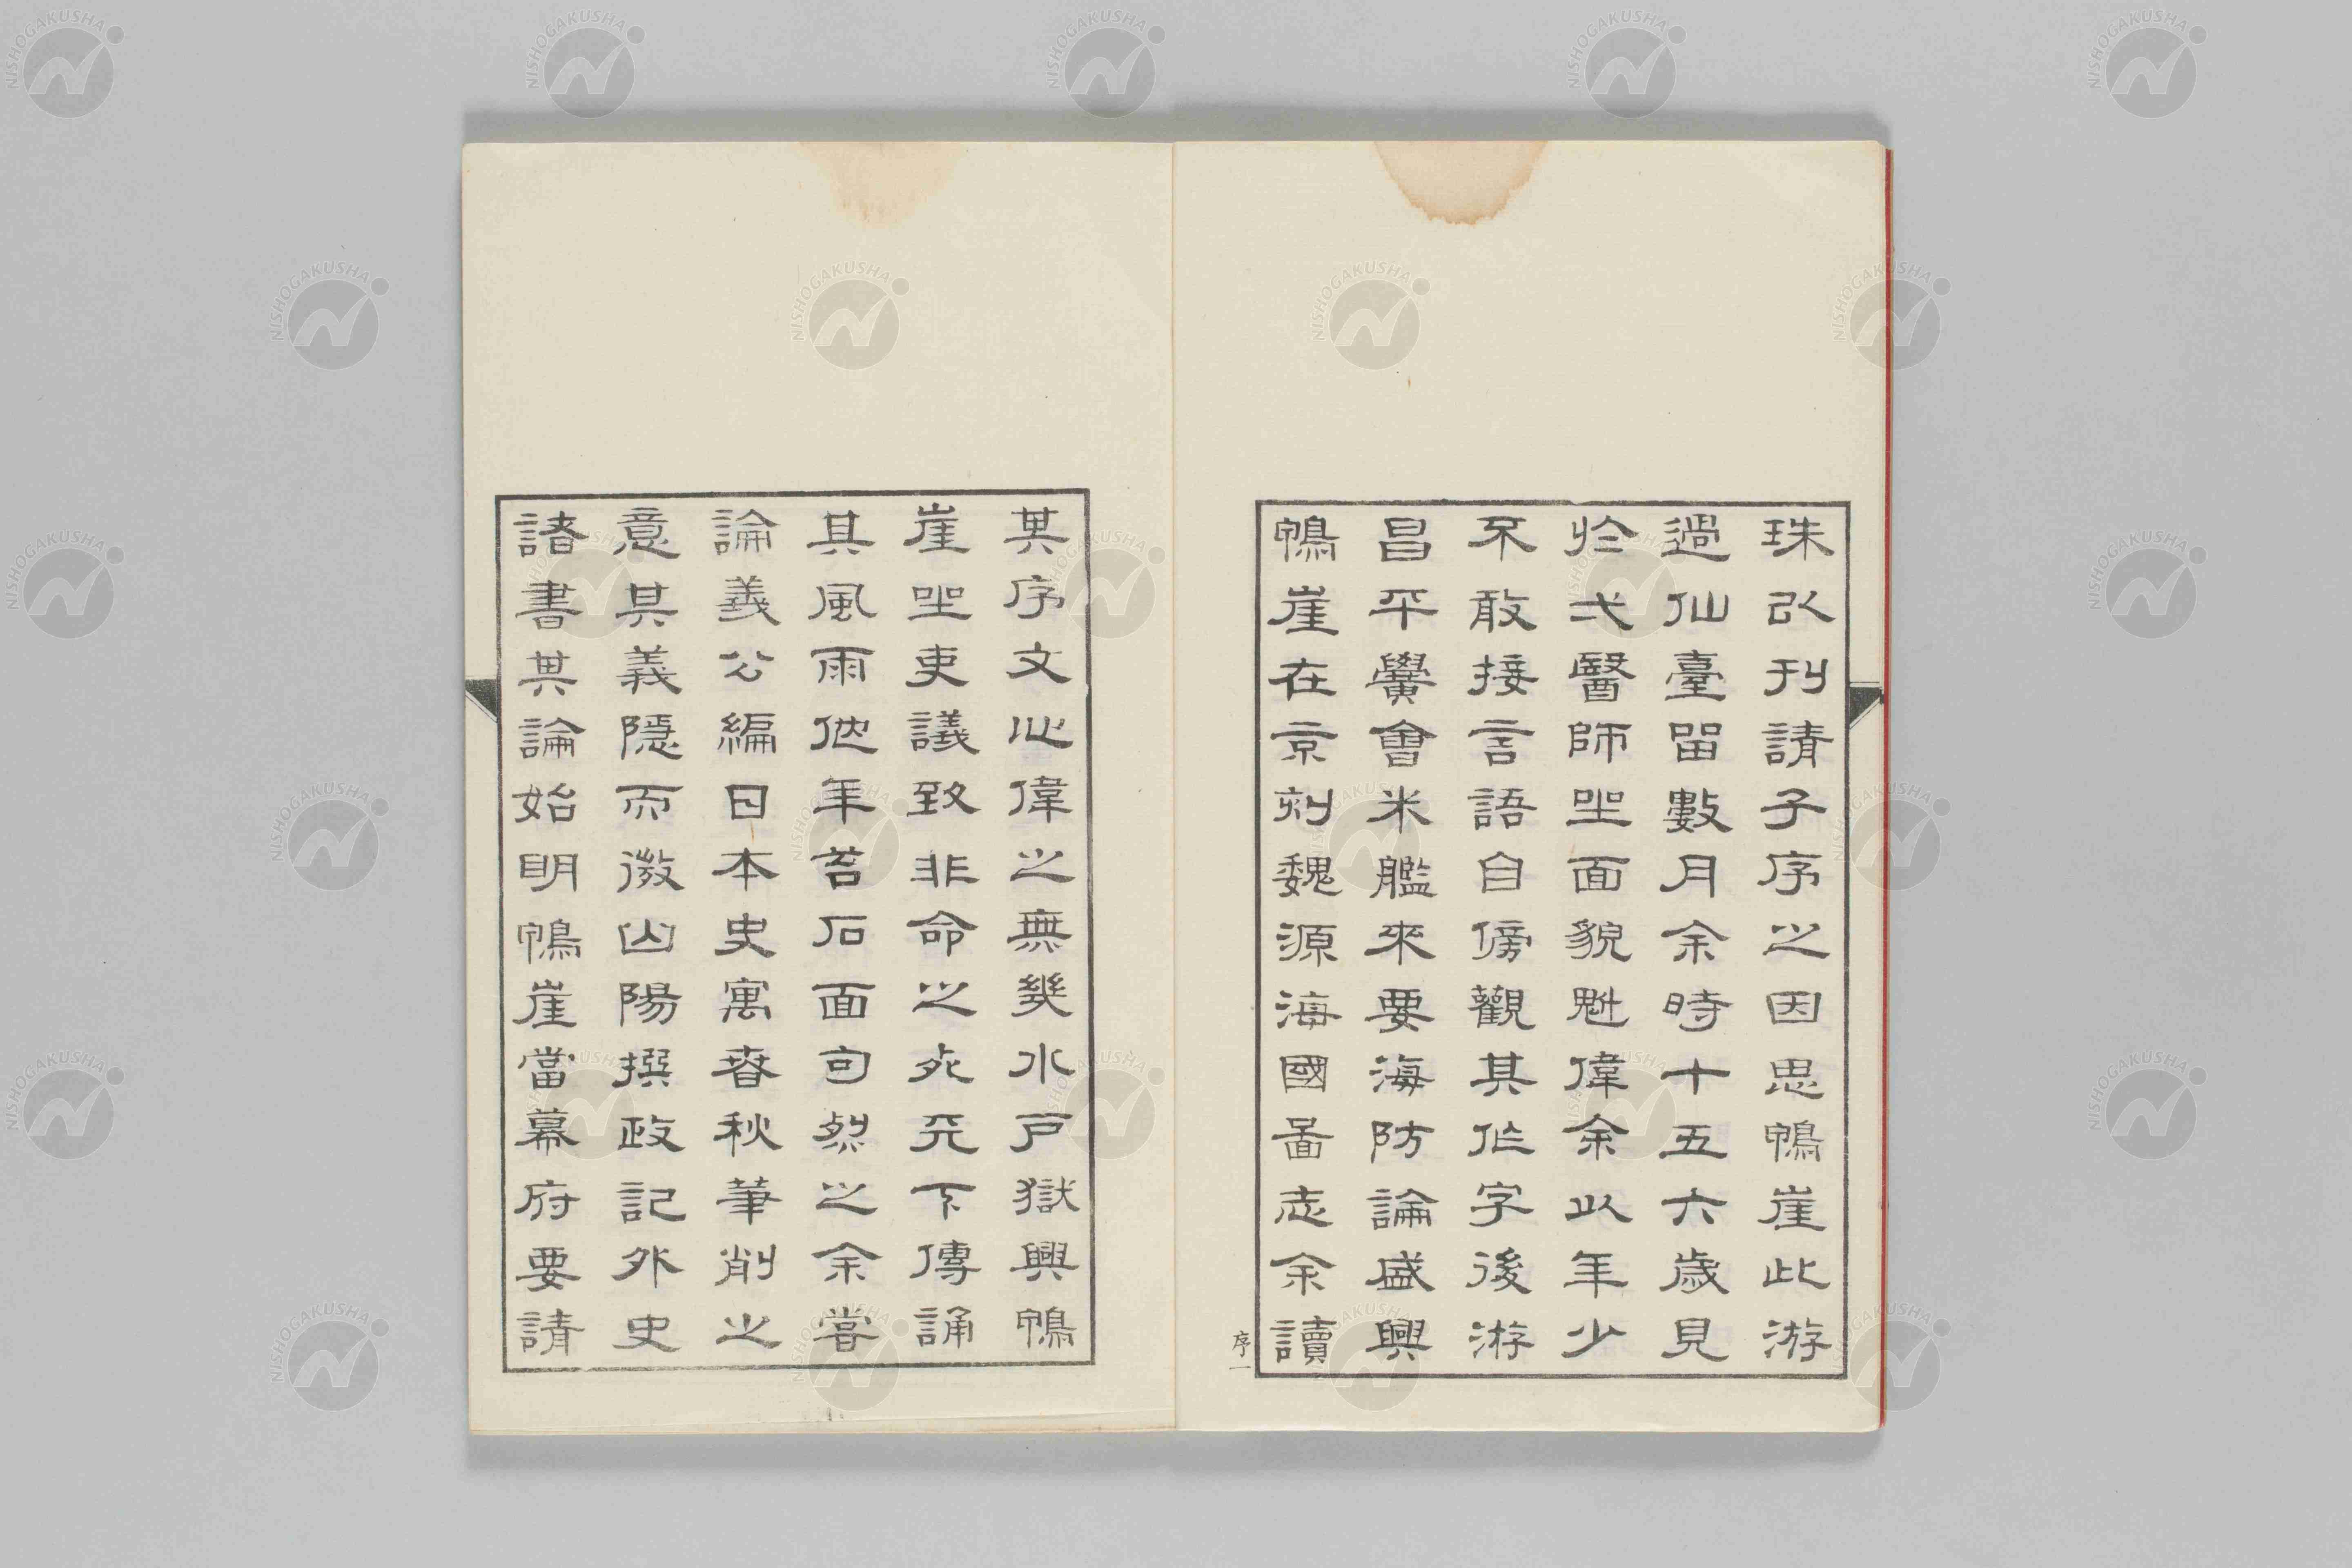 珠以刊請子序之因思鴨崖此游
過仙臺留數月余時十五六歲見
於弌醫師坐面貌魁偉余以年少
不敢接言語自傍觀其作字後游
昌平黌會米艦來要海防論盛興
鴨崖在京刻魏源海國啚志余讀
序一
其序文心偉之無幾水戶獄興鴨
崖坐吏議致非命之死天下傳誦
其風雨他年苔石面句烈之余嘗
論義公編日本史寓春秋筆削之
意其義隱而微山陽撰政記外史
諸書其論始明鴨崖當幕府要請
NISHOGAKUSHA